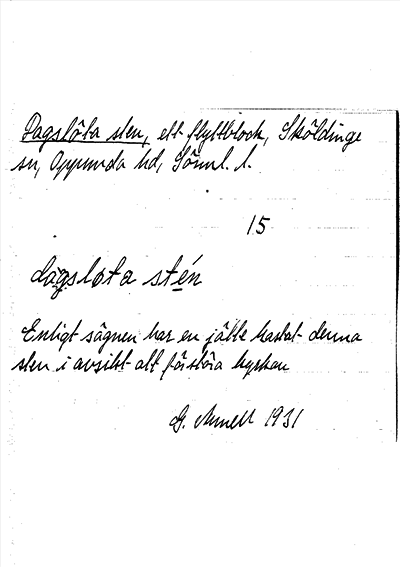 Dagslöta sten, ett flyttblock, Sköldinge
sn, Oppunda hd, Söml. l.
15
dagslota stén
Enligt sägnen har en jätte kastat denna
sten i avsikt att förstöra kyrkan
G. 1931